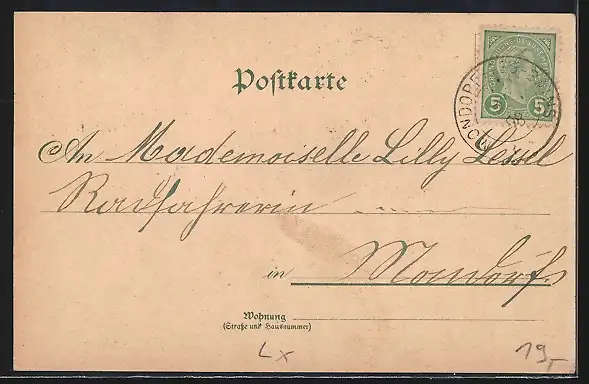 Postkarte
5 5
MONDORF
98
An Mademoiselle Lilly Lessel
Radfahrerin
in Mondorf
Wohnung
(Straße und Hausnummer)
Lx
19,-